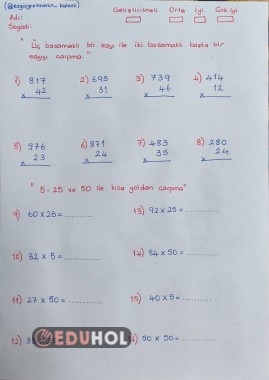 (@ezgiogretmenin_kalemi)
Geliştirilmeli Orta İyi Çok iyi
Adı:
Soyadı:
" Üç basamaklı bir sayı ile iki basamaklı başka bir
sayıyı çarpma. "
1) 817 2) 695 3) 739 4) 414
42 31 46 12
x x x x
5) 976 6) 871 7) 483 8) 280
23 24 35 24
x x x x
" 5 - 25 ve 50 ile kısa yoldan çarpma "
9) 60 x 25 = ............ 13) 92 x 25 = ............
10) 32 x 5 = ............ 14) 54 x 50 = ............
11) 27 x 50 = ............ 15) 40 x 5 = ............
12) 50 x 50 = ............
EDUHOL